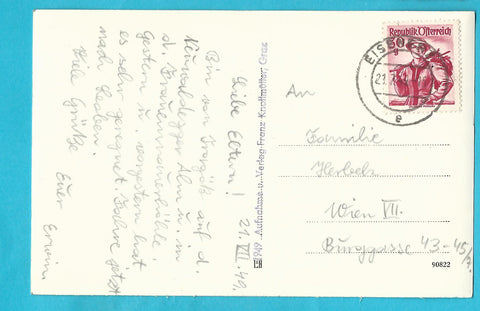 Liebe Eltern! 21.VII.49.
Bin von Trergöß auf d.
Neuwaldegger Alm u. in
d. Frauenmauerhöhle.
Gestern u. vorgestern hat
es sehr geregnet. Fahre jetzt
nach Leoben.
Viele Grüße
Euer
Erwin.
1949 Aufnahme u. Verlag Franz Knollmüller, Graz
Republik Österreich
EISENERZ
21.
e
An
Familie
Wien VII.
Burggasse 43-45/
90822